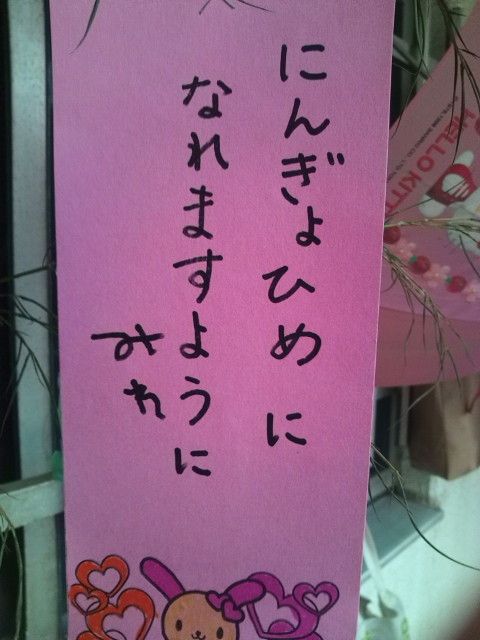 にんぎょひめに
なれますように
みれ
HELLO KITTY